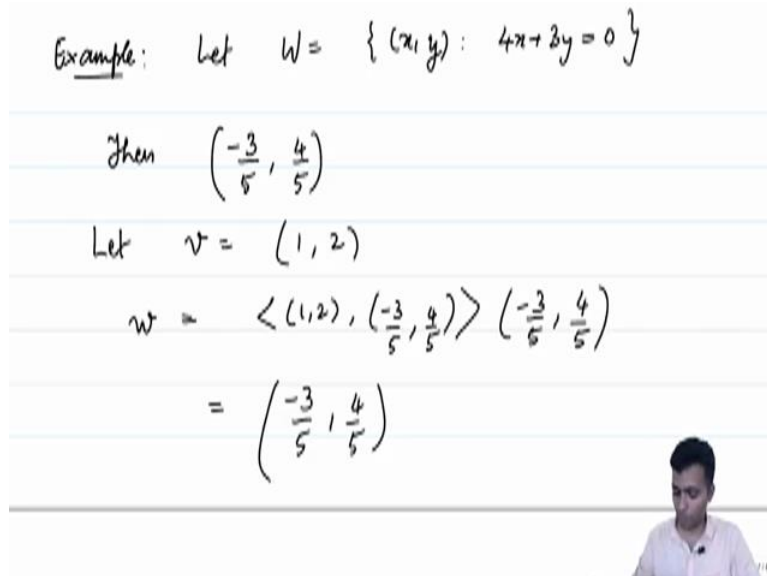 Example: Let W = { (x, y) : 4x + 3y = 0 }
Then (-3/5, 4/5)
Let v = (1, 2)
w = <(1,2), (-3/5, 4/5)> (-3/5, 4/5)
= (-3/5, 4/5)